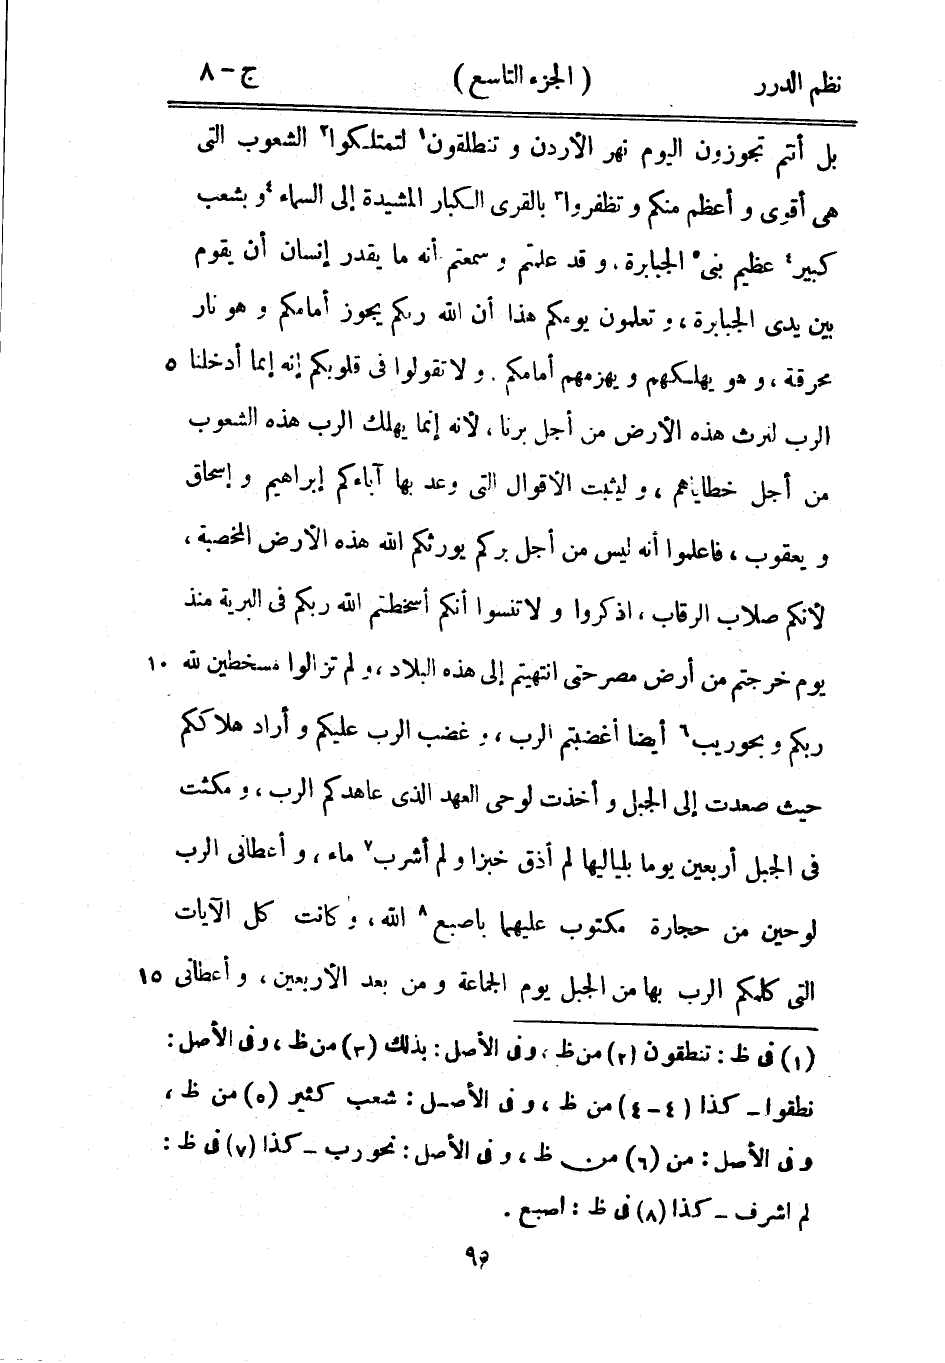 نظم الدرر ( الجزء التاسع ) ج - ٨
بل أنتم تجوزون اليوم نهر الأردن و تنطلقون١ لتمتلكوا٢ الشعوب التى
هى أقوى و أعظم منكم و تظفروا٣ بالقرى الكبار المشيدة إلى السماء ٤و بشعب
كبير٤ عظيم بنى٥ الجبابرة . و قد علمتم و سمعتم أنه ما يقدر إنسان أن يقوم
بين يدى الجبابرة ، و تعلمون يومكم هذا أن الله ربكم يجوز أمامكم و هو نار
محرقة ، و هو يهلككهم و يهزمهم أمامكم . و لا تقولوا فى قلوبكم إنه إنما أدخلنا ٥
الرب لنرث هذه الأرض من أجل برنا ، لأنه إنما يهلك الرب هذه الشعوب
من أجل خطاياهم ، و ليثبت الأقوال التى وعد بها آباءكم إبراهيم و إسحاق
و يعقوب ، فاعلموا أنه ليس من أجل بركم يورثكم الله هذه الأرض المخصبة ،
لأنكم صلاب الرقاب ، اذكروا و لا تنسوا أنكم أسخطتم الله ربكم فى البرية منذ
يوم خرجتم من أرض مصر حتى انتهيتم إلى هذه البلاد ، و لم تزالوا مسخطين لله ١٠
ربكم و بحوريب٦ أيضا أغضبتم الرب ، و غضب الرب عليكم و أراد هلاككم
حيث صعدت إلى الجبل و أخذت لوحى العهد الذى عاهدكم الرب ، و مكثت
فى الجبل أربعين يوما بلياليها لم أذق خبزا و لم أشرب٧ ماء ، و أعطانى الرب
لوحين من حجارة مكتوب عليهما باصبع٨ الله ، و كانت كل الآيات
التى كلمكم الرب بها من الجبل يوم الجماعة و من بعد الأربعين ، و أعطانى ١٥
(١) فى ظ : تنطقون (٢) من ظ ، و فى الأصل : بذلك (٣) من ظ ، و فى الأصل :
نطقوا - كذا (٤ - ٤) من ظ ، و فى الأصل : شعب كثير (٥) من ظ ،
و فى الأصل : من (٦) من ظ ، و فى الأصل : نحورب - كذا (٧) فى ظ :
لم اشرف - كذا (٨) فى ظ : اصبع .
٩٥